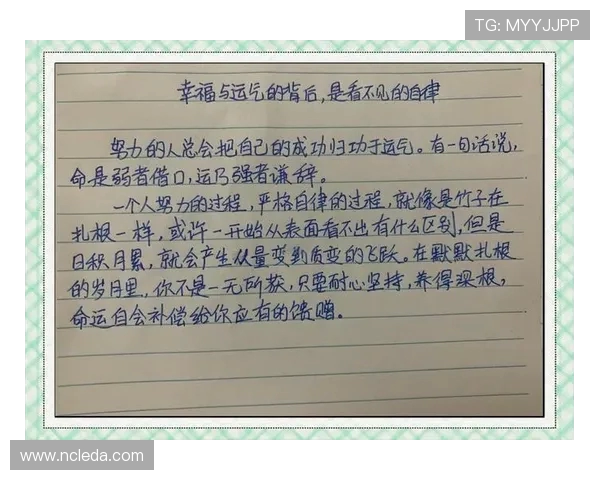 TG: MYYJJPP
幸福与运气的背后,是看不见的自律
努力的人总会把自己的成功归功于运气。有一句话说,
命是弱者借口,运乃强者谦辞。
一个人努力的过程,严格自律的过程,就像是竹子在
扎根一样,或许一开始从表面看不出有什么区别,但是
日积月累,就会产生从量变到质变的飞跃。在默默扎根
的岁月里,你不是一无所获,只要耐心坚持,养得深根,
命运自会补偿给你应有的馈赠。
www.ncleda.com